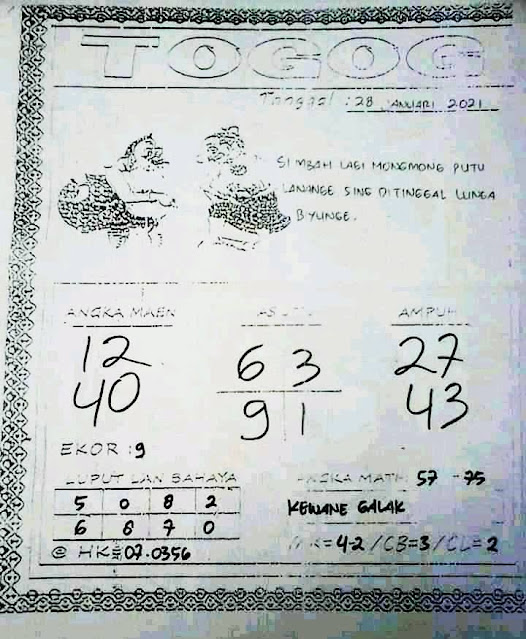 TOGOG
Tanggal : 28 JANUARI 2021
SI MBAH LAGI MONGMONG PUTU
LANANGE SING DITINGGAL LUNGA
BIYUNGE.
ANGKA MAEN
12
40
AS
6 3
9 1
AMPUH
27
43
EKOR : 9
LUPUT LAN BAHAYA
5 0 8 2
6 6 7 0
ANGKA MATI 57 - 75
KEWANE GALAK
@ HK = 07.0356
= 4-2 / CB = 3 / CL = 2